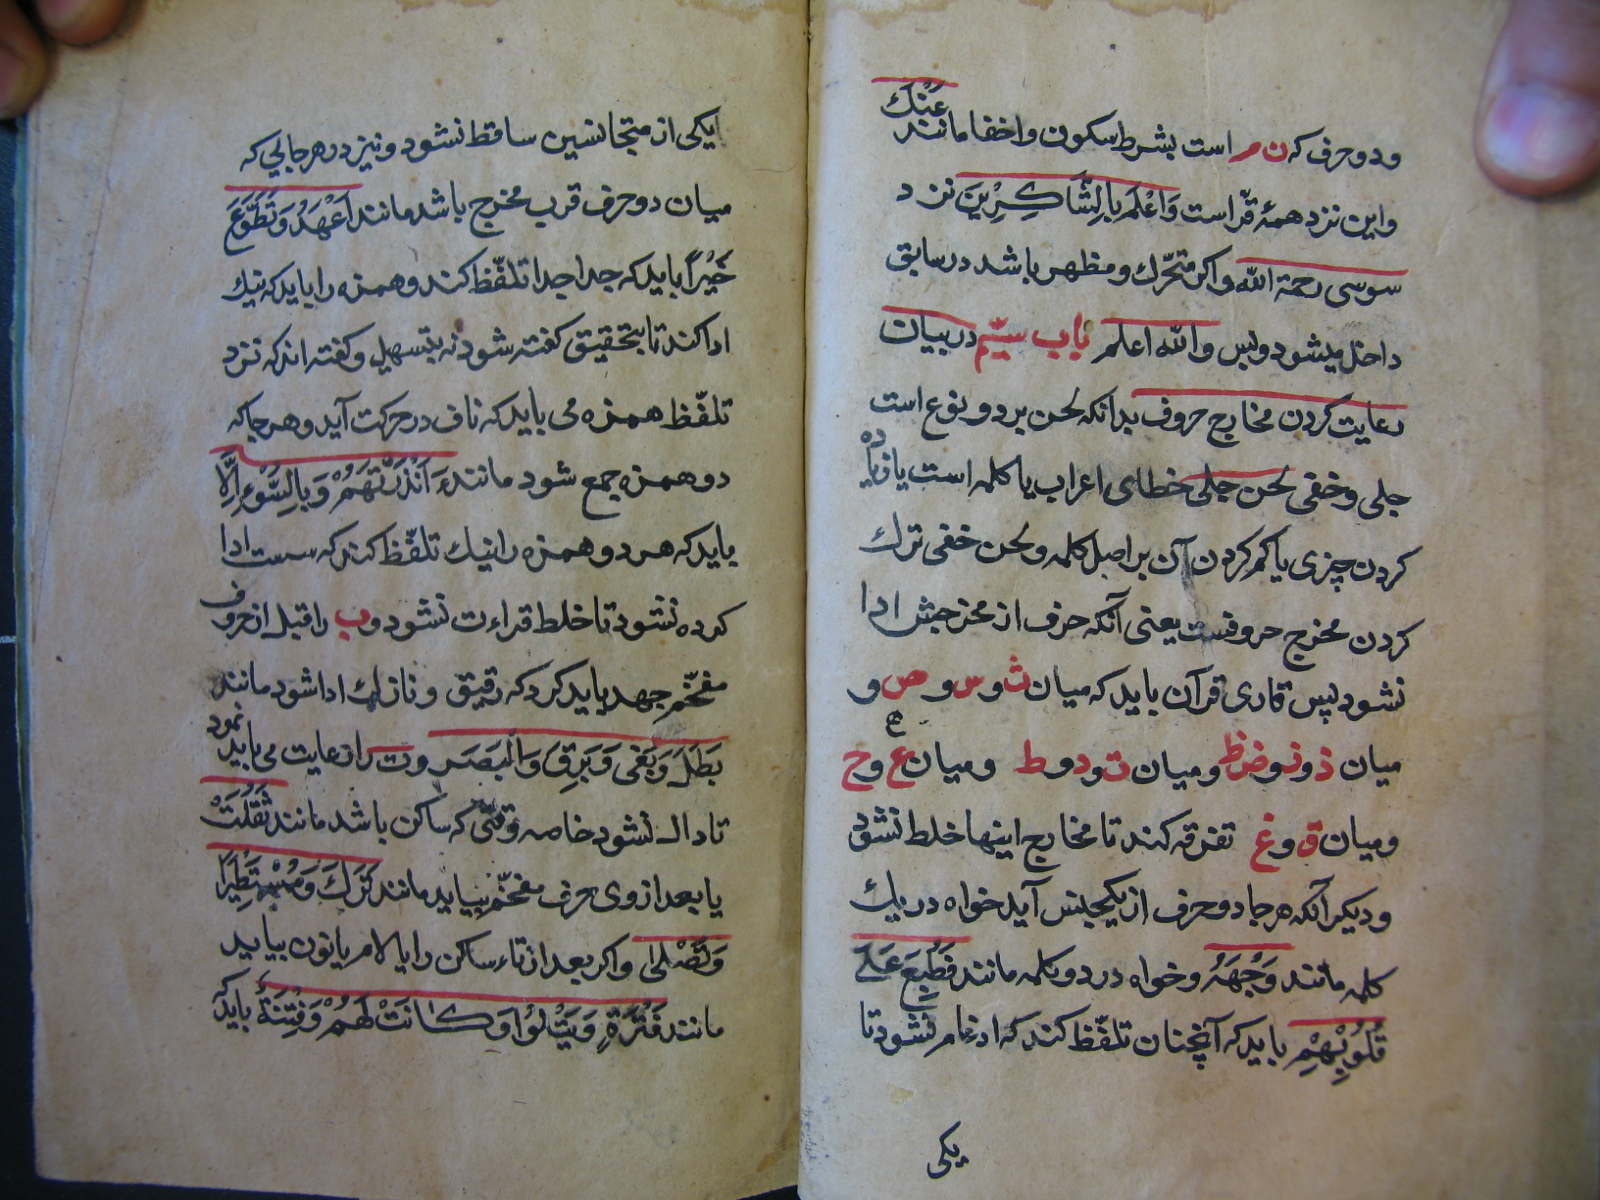 و دو حرف که ن م است بشرط سکون و اخفا مانند عَنْكَ
و این نزد همهٔ قرّا است وَاَعْلَمَ بِالشَّاكِرِينَ نزد
سوسی رحمة الله و اکر متحرّك و مظهر باشد در سابق
داخل میشود و بس والله اعلم باب سیّم در بیان
رعایت کردن مخارج حروف بدانکه لحن بر دو نوع است
جلی و خفی لحن جلی خطای اعراب یا کلمه است یا زیاده
کردن چیزی یا کم کردن آن بر اصل کلمه و لحن خفی ترك
کردن مخرج حروفست یعنی آنکه حرف از مخرجش ادا
نشود پس قاری قرآن باید که میان ث و س و ص و
میان ذ و ز و ض ظ و میان ت و د و ط و میان ع و ح ه
و میان ق و غ تفرقه کند تا مخارج اینها خلط نشود
و دیکر آنکه هر جا دو حرف از یکجنس آید خواه در یك
کلمه مانند وَجْهَهُ و خواه در دو کلمه مانند فَطُبِعَ عَلَى
قُلُوبِهِمْ باید که آنچنان تلفّظ کند که ادغام نشود تا
یکی
ایکی از متجانسین ساقط نشود و نیز در هر جایی که
میان دو حرف قرب مخرج باشد مانند اَعْهَدْ وَتَطَوَّعَ
خَيْرًا باید که جدا جدا تلفّظ کند و همزه را باید که نیك
ادا کند تا بتحقیق کفته شود نه بتسهیل و کفته اند که نزد
تلفّظ همزه می باید که ناف در حرکت آید و هر جا که
دو همزه جمع شود مانند ءَاَنْذَرْتَهُمْ وَبِالسُّوءِ اِلَّا
باید که هر دو همزه را نیك تلفّظ کند که سست ادا
کرده نشود تا خلط قراءت نشود و ب را قبل از حروف
مفخّم جهد باید کرد که رقیق و نازك ادا شود مانند
بَطَلَ وَبَغَى وَبَرِقَ وَالْبَصَرِ و ت را رعایت می باید نمود
تا دال نشود خاصه وقتی که ساکن باشد مانند ثَقُلَتْ
یا بعد از وی حرف مفخّم بیاید مانند تَرَكَ وَمُسْتَطِيرًا
وَتَصْلَى و اکر بعد از تاء ساکن را یا لام یا نون بیاید
مانند فَتْرَةٍ وَيَتْلُوا وَكَانَتْ لَهُمْ وَفِتْنَةً باید که